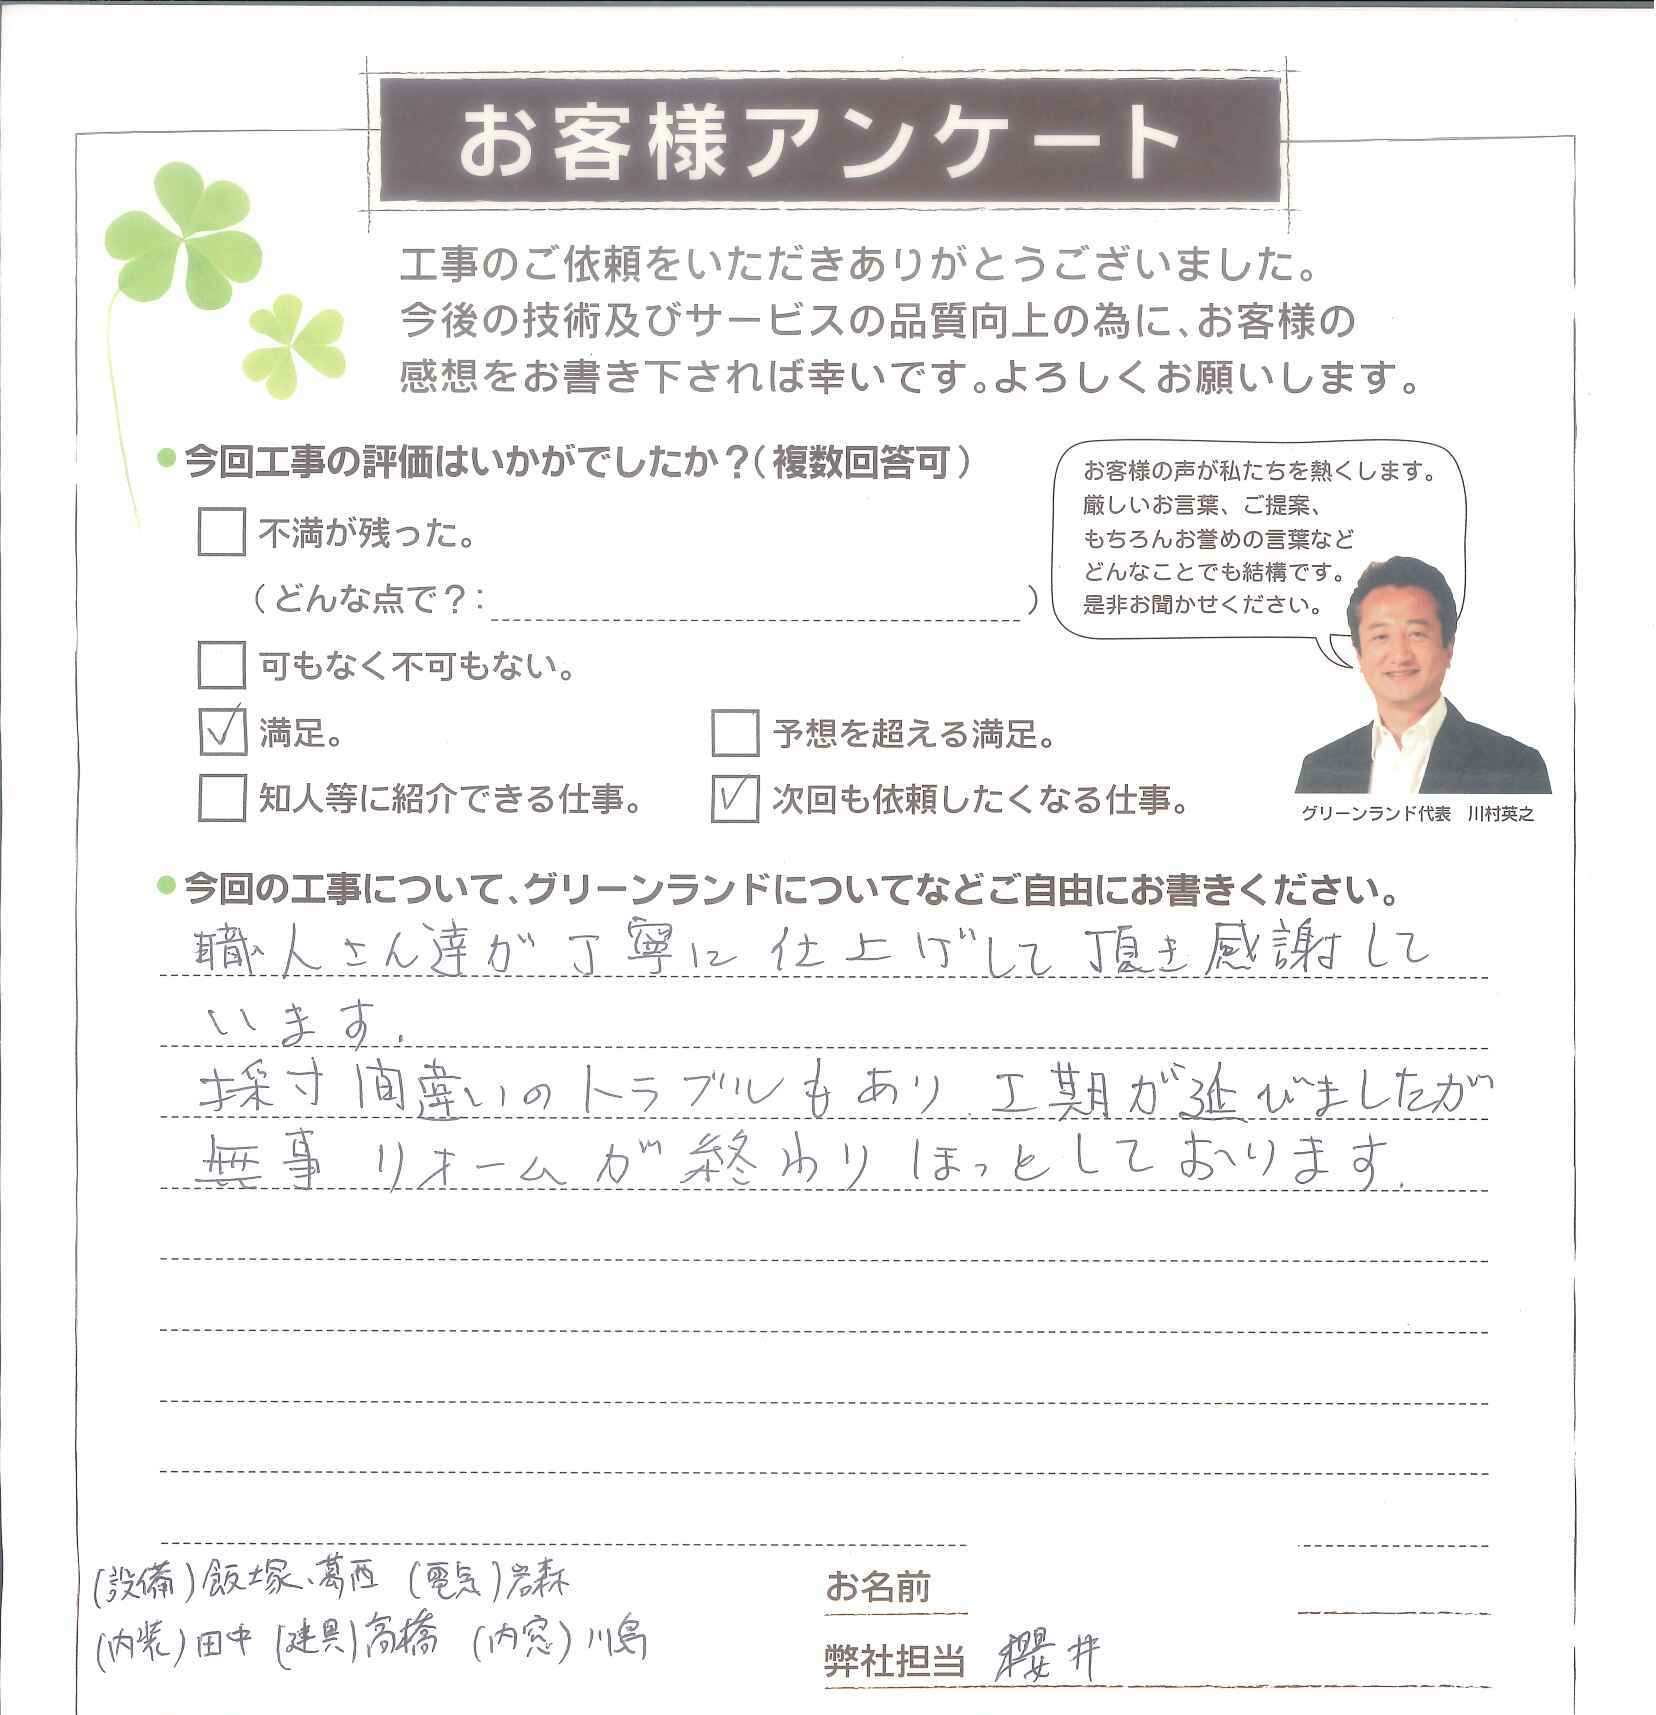 お客様アンケート
工事のご依頼をいただきありがとうございました。
今後の技術及びサービスの品質向上の為に、お客様の
感想をお書き下されば幸いです。よろしくお願いします。
今回工事の評価はいかがでしたか？（複数回答可）
不満が残った。
（どんな点で？：　）
可もなく不可もない。
満足。
予想を超える満足。
知人等に紹介できる仕事。
次回も依頼したくなる仕事。
お客様の声が私たちを熱くします。
厳しいお言葉、ご提案、
もちろんお誉めの言葉など
どんなことでも結構です。
是非お聞かせください。
グリーンランド代表　川村英之
今回の工事について、グリーンランドについてなどご自由にお書きください。
職人さん達が丁寧に仕上げして頂き感謝して
います.
採寸間違いのトラブルもあり、工期が延びましたが
無事リォームが終わりほっとしております.
(設備)飯塚、葛西 (電気)岩森
(内装)田中 (建具)高橋 (内窓)川島
お名前
弊社担当 櫻井